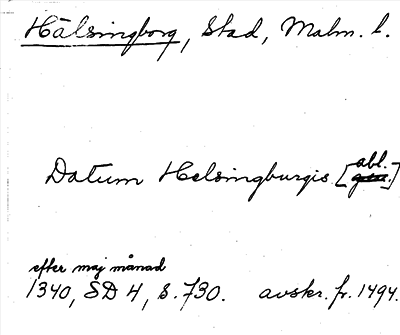 Hälsingborg, Stad, Malm. l.
Datum Helsingburgis [abl.]
efter maj månad
1340, SD 4, s. 730. avskr. fr. 1494.